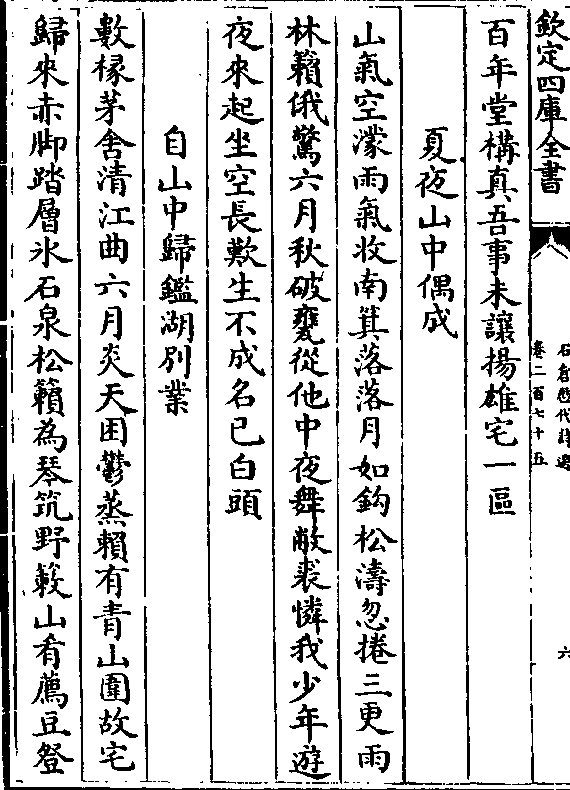 欽定四庫全書
石倉歷代詩選
卷二百七十五
六
百年堂構真吾事未讓揚雄宅一區
夏夜山中偶成
山氣空濛雨氣收南箕落落月如鈎松濤忽捲三更雨
林籟俄驚六月秋破甕從他中夜舞敝裘憐我少年遊
夜來起坐空長歎生不成名已白頭
自山中歸鑑湖別業
數椽茅舍清江曲六月炎天困鬱蒸賴有青山圍故宅
歸來赤脚踏層氷石泉松籟為琴筑野簌山肴薦豆登